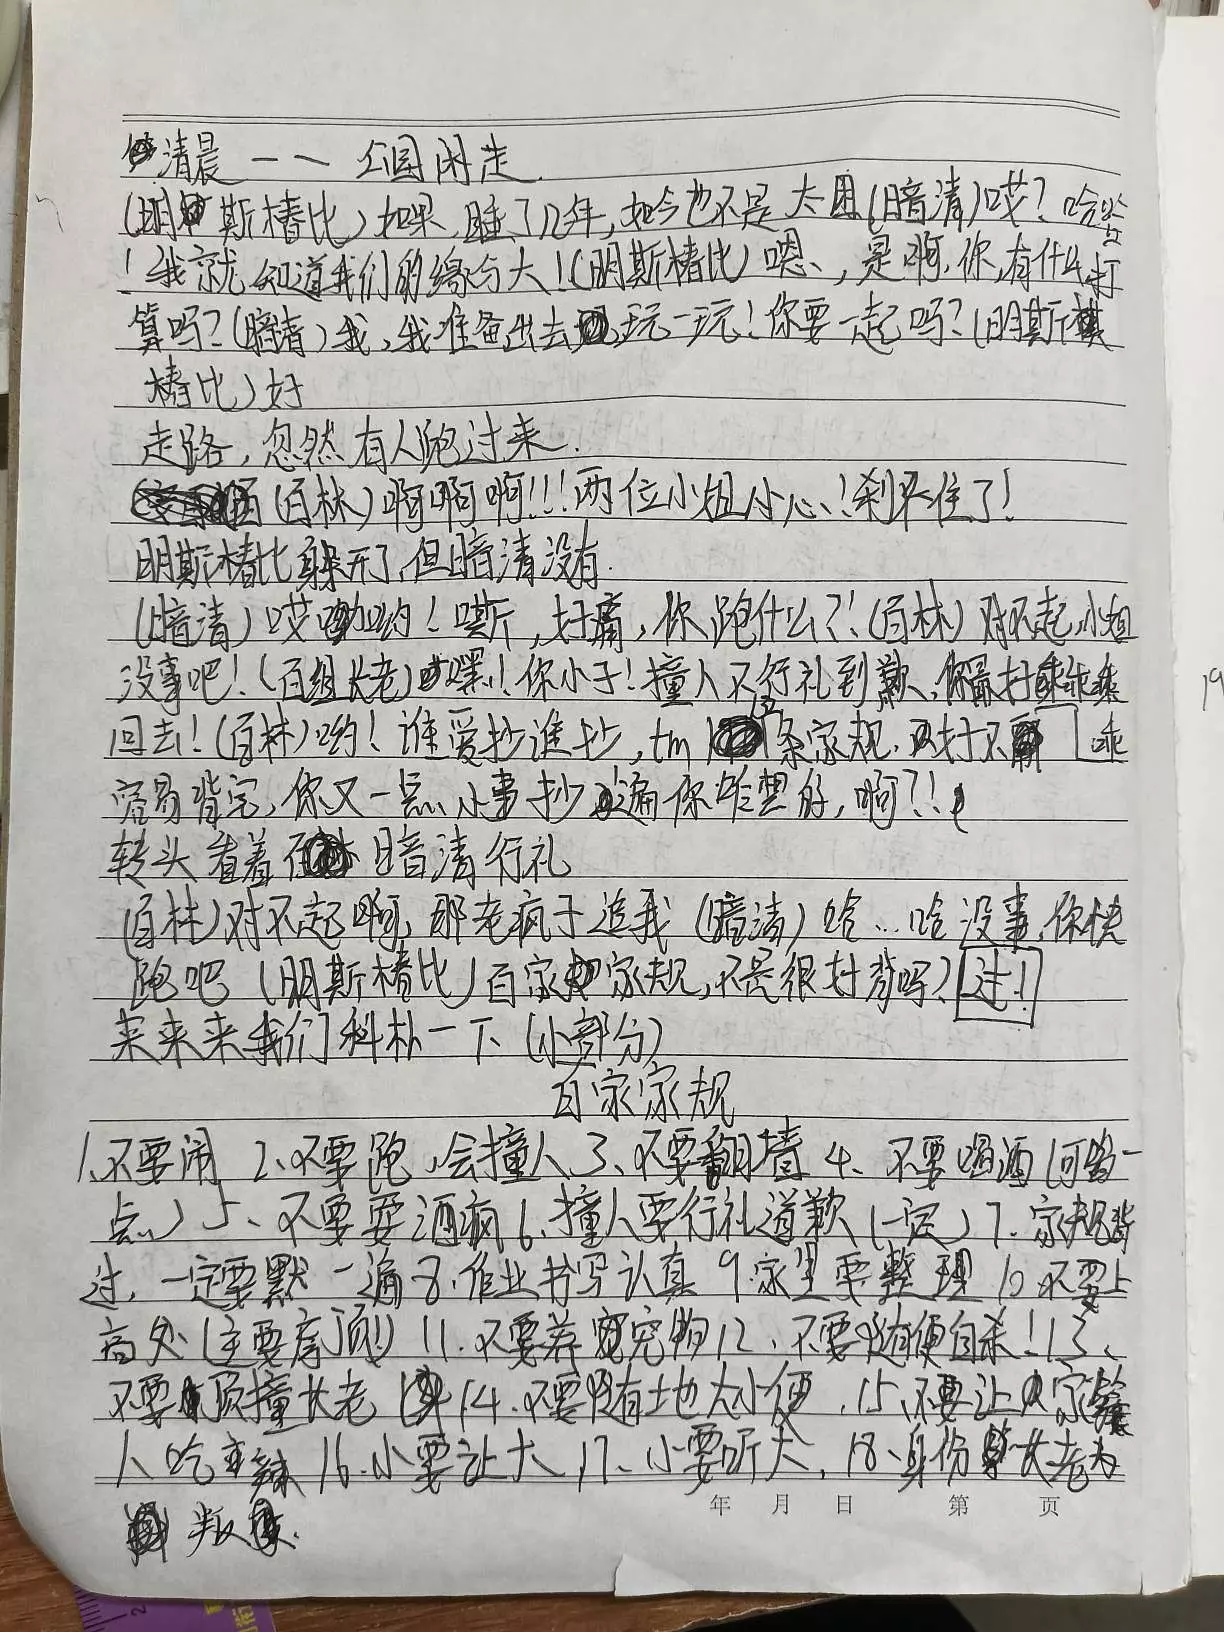 清晨一一公园闲走.
(明斯椿比)如果,睡了几年,如今也不是太困(暗清)哎?哈哈
!我就知道我们的缘分大!(明斯椿比)嗯、,是啊,你,有什么打
算吗?(暗清)我,我准备出去玩一玩!你要一起吗?(明斯
椿比)好
走路,忽然有人跑过来.
(百林)啊啊啊!!!两位小姐小心!刹不住了!
明斯椿比躲开了,但暗清没有.
(暗清)哎呦哟!嘶,好痛,你跑什么?!(百林)对不起,小姐
没事吧!(百组长老)嘿!你小子!撞人不行礼到歉,你最好乖乖
回去!(百林)哟!谁爱抄谁抄,tm 条家规,又好不
容易背完,你又一点小事抄遍你咋想的,啊?!!
转头看着暗清行礼
(百林)对不起啊,那老疯子追我(暗清)哈...哈没事,你快
跑吧(明斯椿比)百家家规,不是很好背吗?过!
来来来我们科朴一下(小部分)
百家家规
1、不要闹 2、不要跑,会撞人 3、不要翻墙 4、不要喝酒(可留一
点)5、不要耍酒疯 6、撞人要行礼道歉(一定)7.家规背
过,一定要默一遍 8.作业书写认真 9.家里要整理 10.不要上
高处(主要房顶)11.不要养宠物 12、不要随便自杀!13、
不要顶撞长老 14.不要随地大小便.15、不要让家
人吃辣 16.小要让大 17、小要听大,18、身份长老为
年 月 日 第 页
19